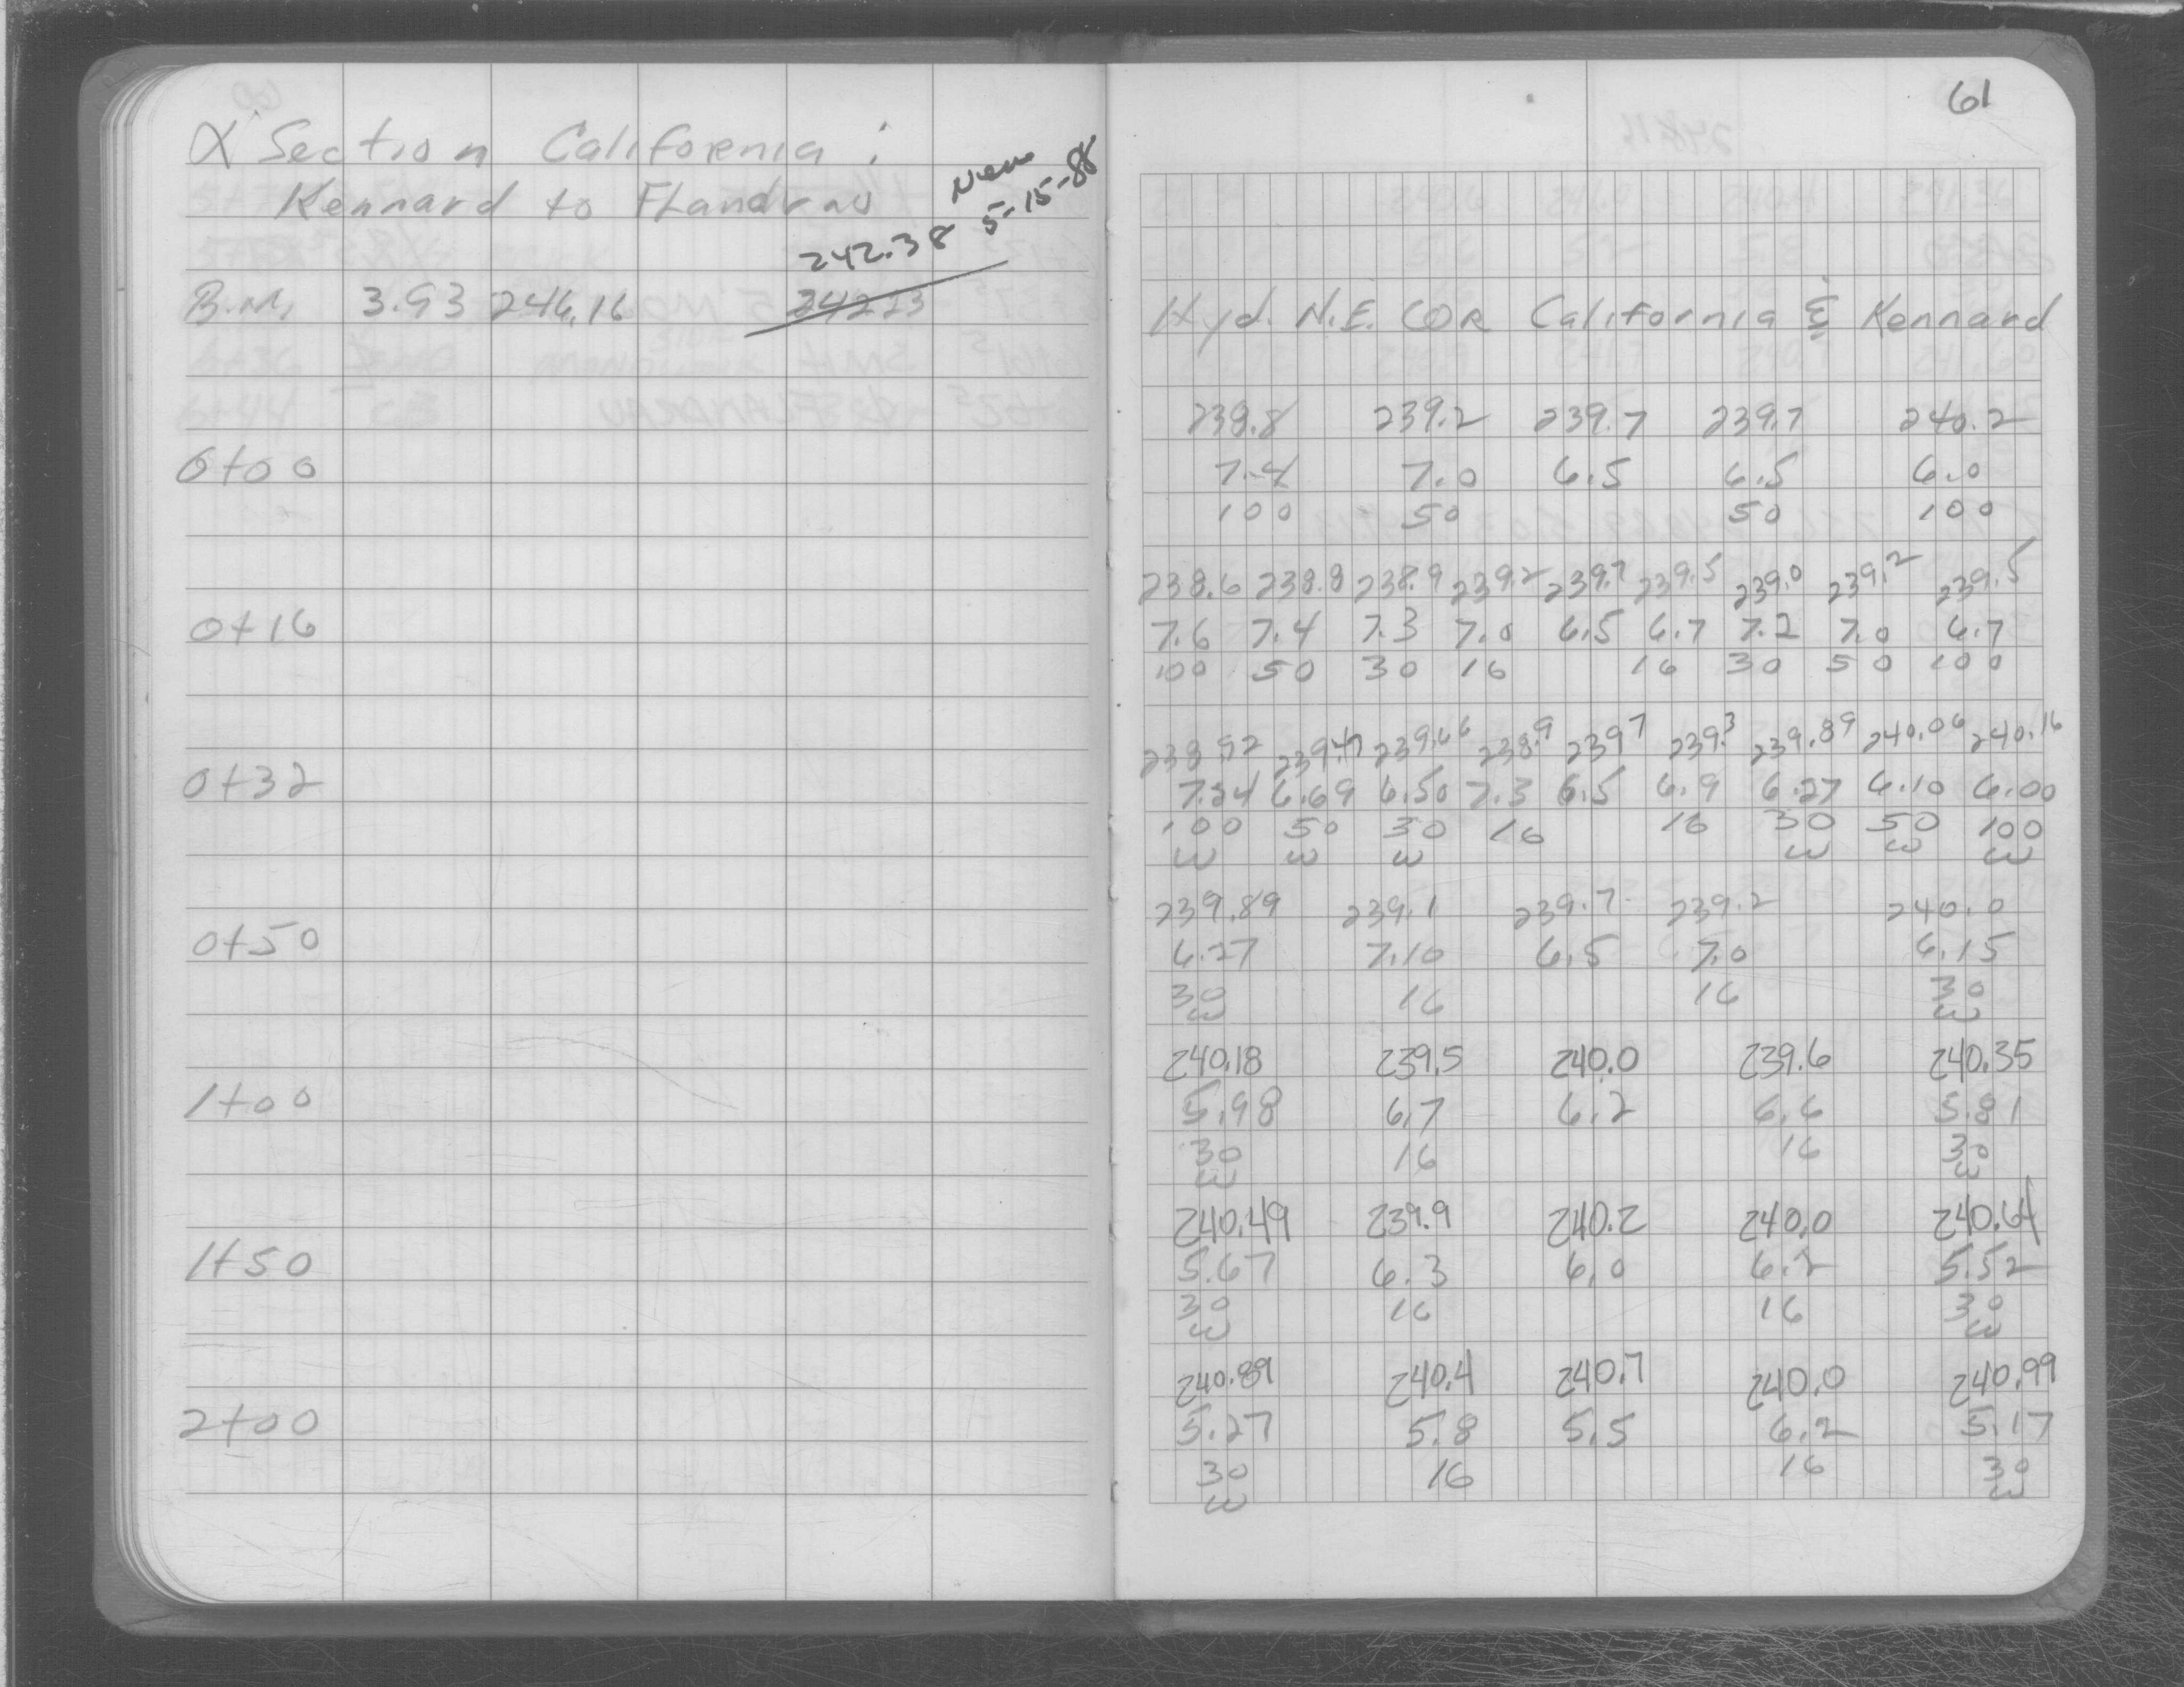 X Section California :
Kennard to Flandrau
New
5-15-88
242.38
B.M. 3.93 246.16 242.23
0+00
0+16
0+32
0+50
1+00
1+50
2+00
61
Hyd. N.E. COR California & Kennard
238.8 239.2 239.7 239.7 240.2
7.4 7.0 6.5 6.5 6.0
100 50 50 100
238.6 238.8 238.9 239.2 239.7 239.5 239.0 239.2 239.5
7.6 7.4 7.3 7.0 6.5 6.7 7.2 7.0 6.7
100 50 30 16 16 30 50 100
238.92 239.47 239.66 238.9 239.7 239.3 239.89 240.06 240.16
7.24 6.69 6.50 7.3 6.5 6.9 6.27 6.10 6.00
100 50 30 16 16 30 50 100
W W W W W W
239.89 239.1 239.7 239.2 240.0
6.27 7.10 6.5 7.0 6.15
30 16 16 30
W W
240.18 239.5 240.0 239.6 240.35
5.98 6.7 6.2 6.6 5.81
30 16 16 30
W W
240.49 239.9 240.2 240.0 240.64
5.67 6.3 6.0 6.2 5.52
30 16 16 30
W W
240.89 240.4 240.7 240.0 240.99
5.27 5.8 5.5 6.2 5.17
30 16 16 30
W W